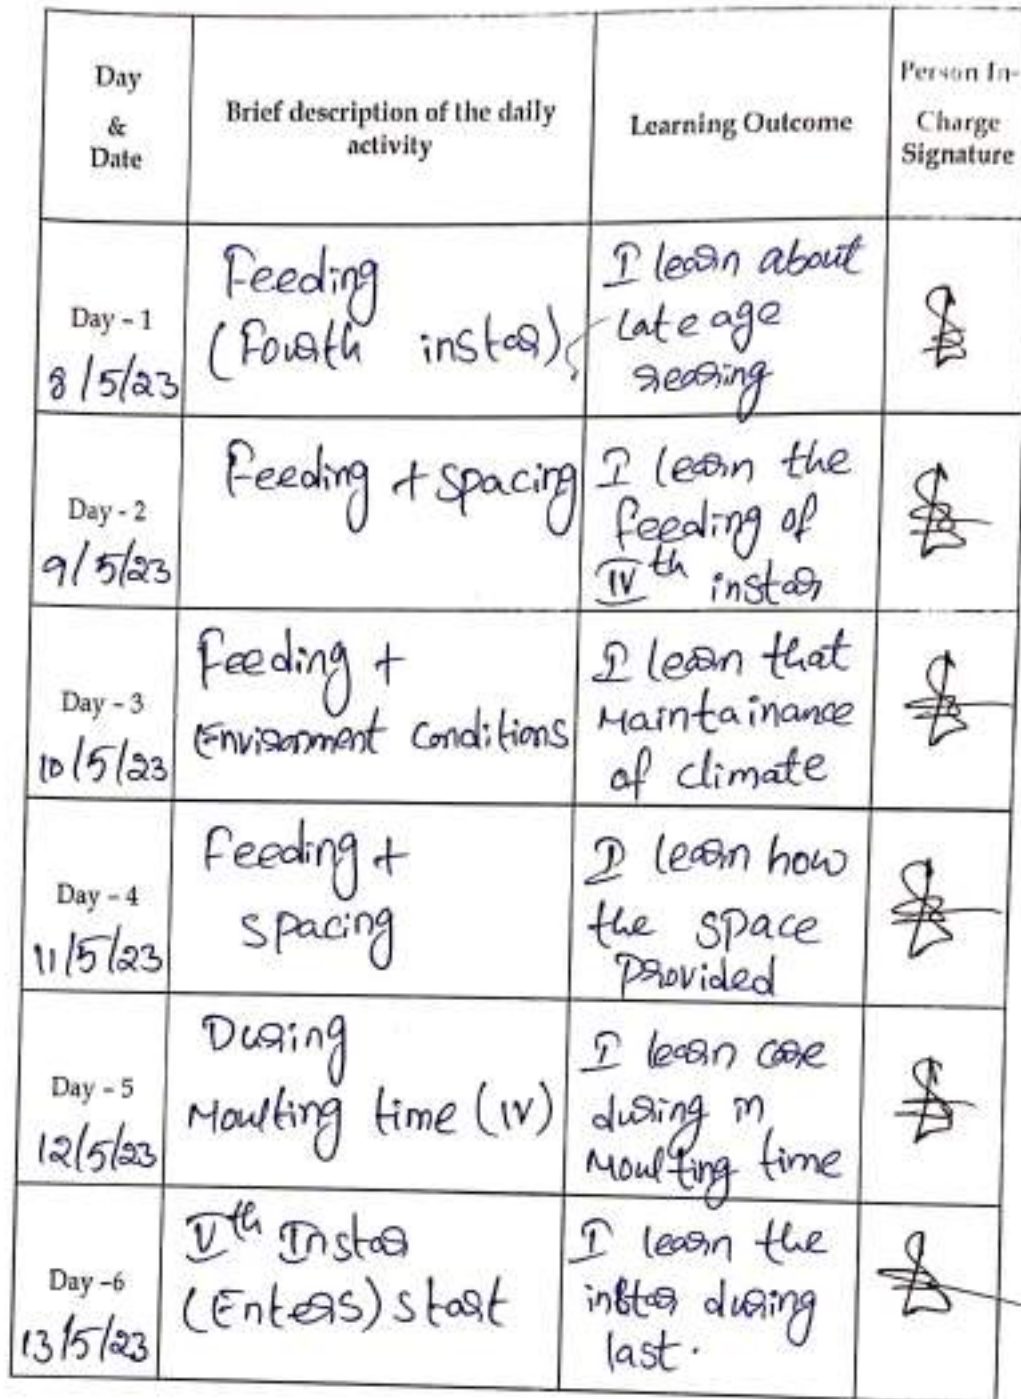 Day
&
Date
Brief description of the daily
activity
Learning Outcome
Person In-
Charge
Signature
Day - 1
8/5/23
Feeding
(Fourth instar)
I learn about
Late age
rearing
Day - 2
9/5/23
Feeding + Spacing
I learn the
feeding of
IVth instar
Day - 3
10/5/23
Feeding +
Environment Conditions
I learn that
Maintainance
of climate
Day - 4
11/5/23
Feeding +
Spacing
I learn how
the space
Provided
Day - 5
12/5/23
During
Moulting time (IV)
I learn care
during in
Moulting time
Day -6
13/5/23
Vth Instar
(Enters) start
I learn the
instar during
last.